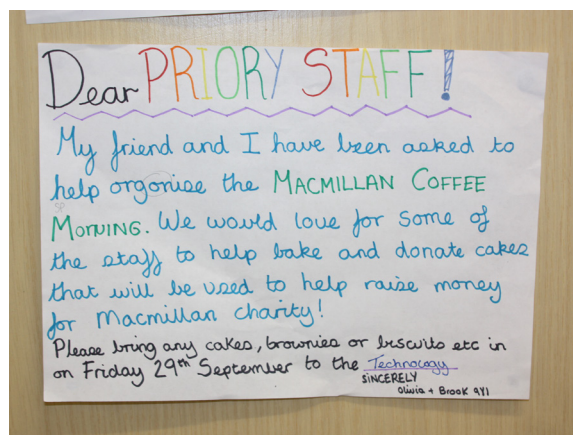 Dear PRIORY STAFF!
My friend and I have been asked to
help orgonise the MACMILLAN COFFEE
MORNING. We would love for some of
the staff to help bake and donate cakes
that will be used to help raise money
for Macmillan charity!
Please bring any cakes, brownies or biscuits etc in
on Friday 29th September to the Technology
SINCERELY
Olivia + Brook 9Y1